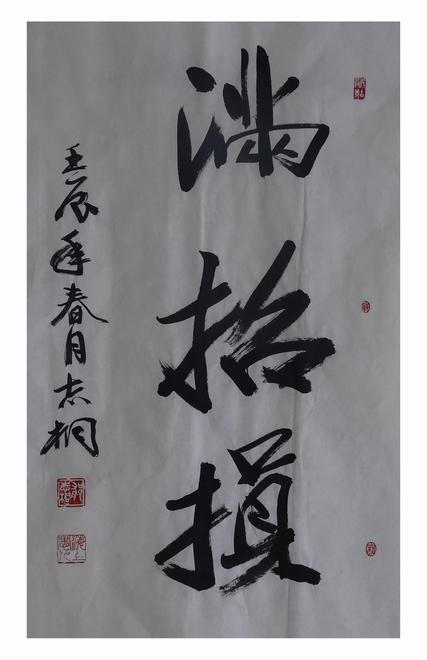 满招损
壬辰年春月志桐